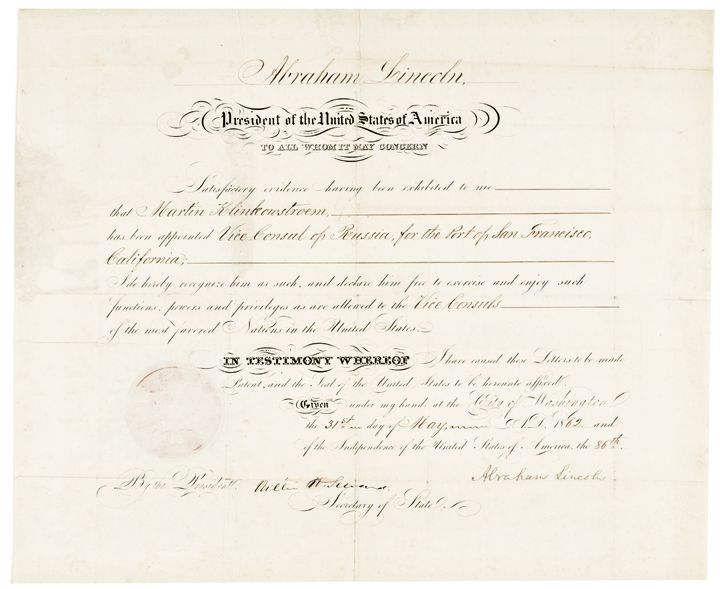 Abraham Lincoln,
President of the United States of America
TO ALL WHOM IT MAY CONCERN
Satisfactory evidence having been exhibited to me
that Martin Klinkowstroem,
has been appointed Vice Consul of Russia, for the Port of San Francisco,
California,
I do hereby recognize him as such, and declare him free to exercise and enjoy such
functions, powers and privileges as are allowed to the Vice Consuls
of the most favored Nations in the United States.
IN TESTIMONY WHEREOF I have caused these Letters to be made
Patent, and the Seal of the United States to be hereunto affixed.
Given under my hand, at the City of Washington
the 31st day of May, A.D. 1862, and
of the Independence of the United States of America, the 86th.
Abraham Lincoln
By the President, William H. Seward
Secretary of State